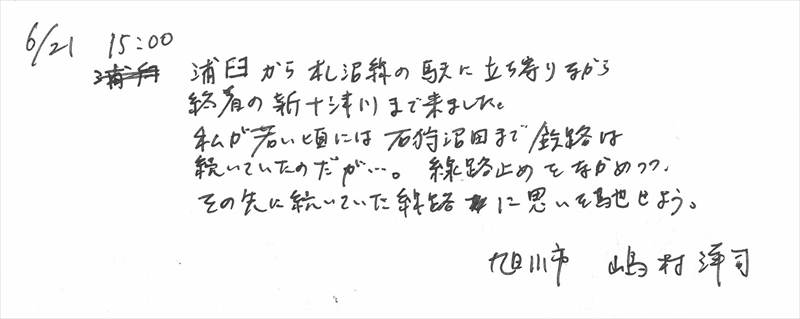 6/21 15:00
浦臼から札沼線の駅に立ち寄りながら
終着の新十津川まで来ました。
私が若い頃には石狩沼田まで鉄路は
続いていたのだが…。線路止めをながめつつ、
その先に続いていた線路に思いを馳せよう。
旭川市 嶋村洋司